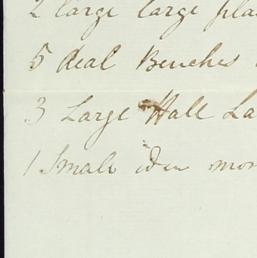 2 large large pla
5 deal Benches
3 Large Hall La
1 Small